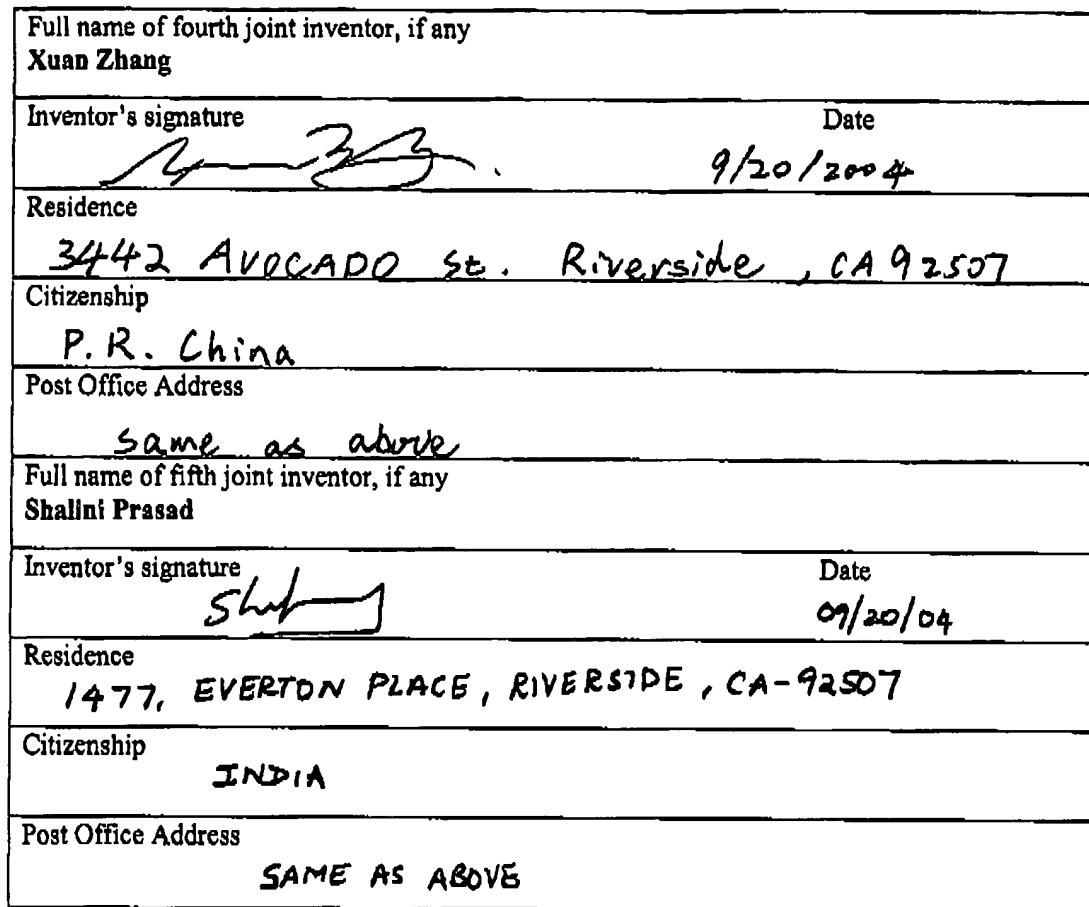 Full name of fourth joint inventor, if any
Xuan Zhang
Inventor's signature Date
9/20/2004
Residence
3442 AVOCADO St. Riverside, CA 92507
Citizenship
P.R. China
Post Office Address
same as above
Full name of fifth joint inventor, if any
Shalini Prasad
Inventor's signature Date
09/20/04
Residence
1477, EVERTON PLACE, RIVERSIDE, CA-92507
Citizenship
INDIA
Post Office Address
SAME AS ABOVE